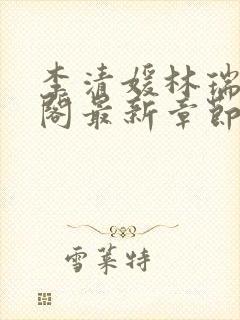 李清媛林瑞
阁最新章节
雪莱特